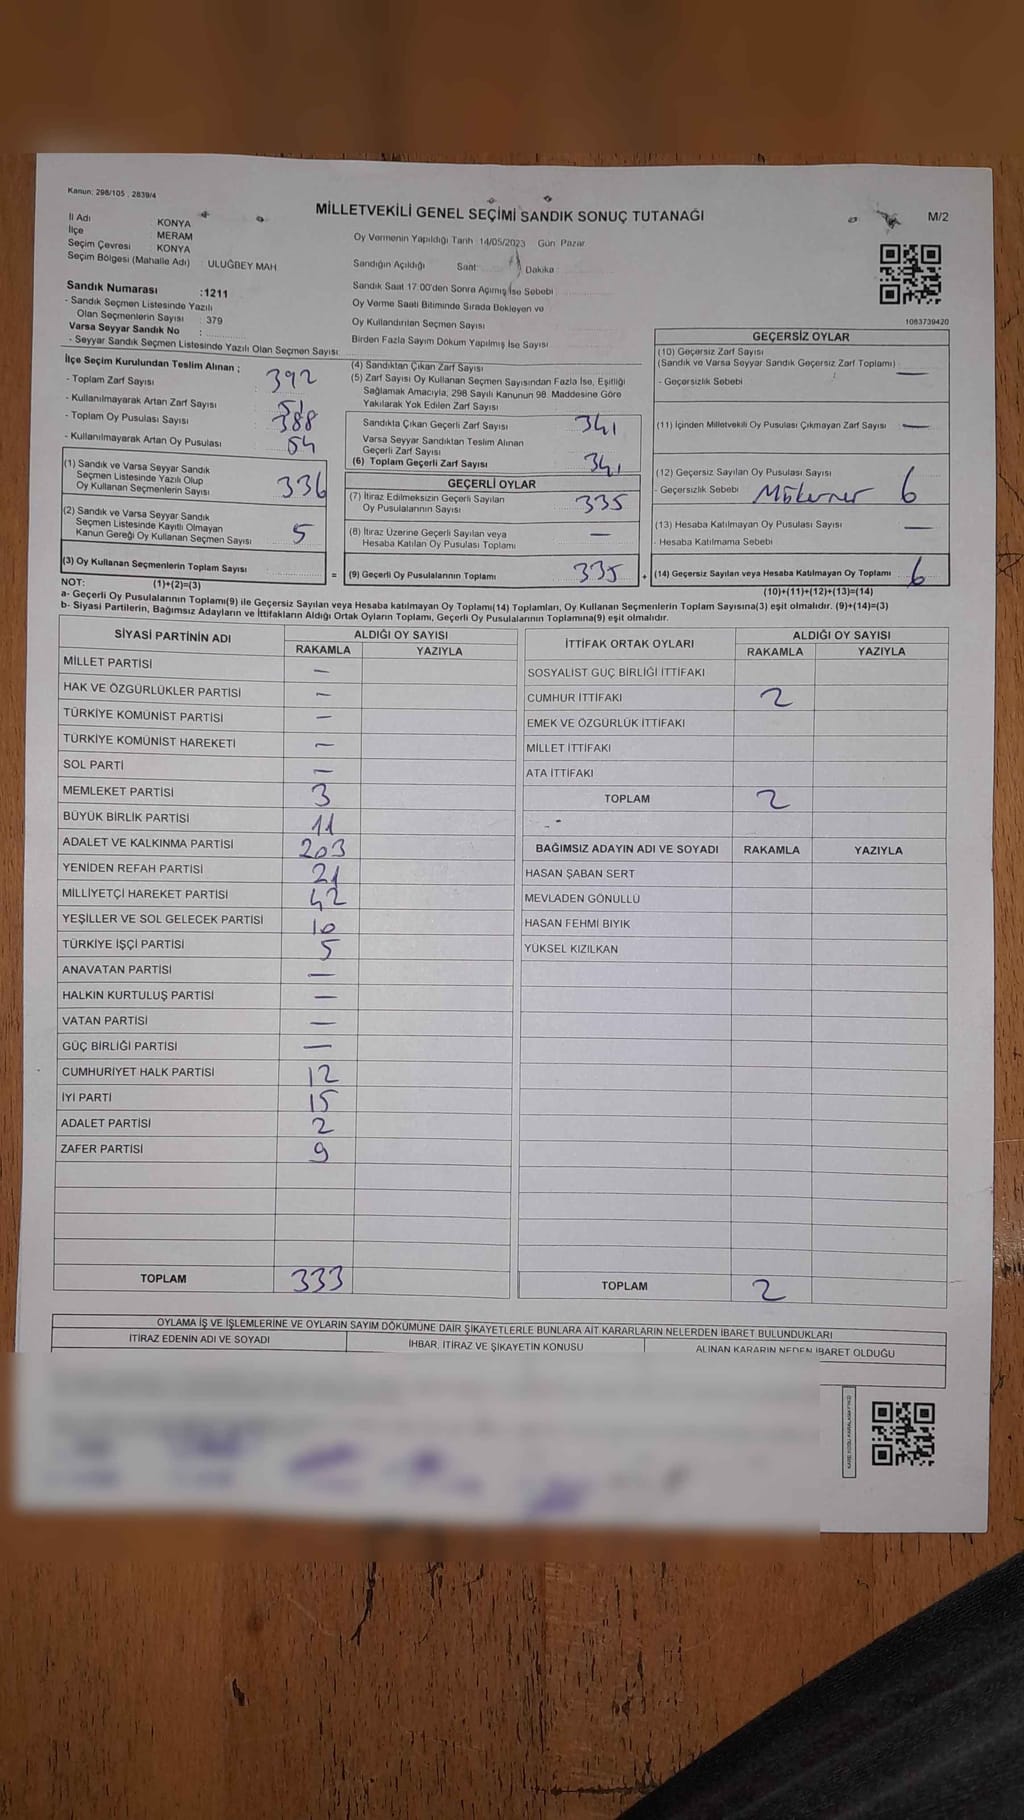 Kanun: 298/105 , 2839/4
MİLLETVEKİLİ GENEL SEÇİMİ SANDIK SONUÇ TUTANAĞI
M/2
İl Adı KONYA
İlçe MERAM
Seçim Çevresi KONYA
Seçim Bölgesi (Mahalle Adı) : ULUĞBEY MAH
Sandık Numarası :1211
- Sandık Seçmen Listesinde Yazılı
Olan Seçmenlerin Sayısı : 379
Varsa Seyyar Sandık No :
- Seyyar Sandık Seçmen Listesinde Yazılı Olan Seçmen Sayısı
Oy Vermenin Yapıldığı Tarih 14/05/2023 Gün Pazar
Sandığın Açıldığı Saat: Dakika
Sandık Saat 17:00'den Sonra Açımış İse Sebebi
Oy Verme Saati Bitiminde Sırada Bekleyen ve
Oy Kullandırılan Seçmen Sayısı
Birden Fazla Sayım Döküm Yapılmış İse Sayısı
1083739420
İlçe Seçim Kurulundan Teslim Alınan ;
- Toplam Zarf Sayısı 392
- Kullanılmayarak Artan Zarf Sayısı 51
- Toplam Oy Pusulası Sayısı 388
- Kullanılmayarak Artan Oy Pusulası 54
(1) Sandık ve Varsa Seyyar Sandık
Seçmen Listesinde Yazılı Olup
Oy Kullanan Seçmenlerin Sayısı 336
(2) Sandık ve Varsa Seyyar Sandık
Seçmen Listesinde Kayıtlı Olmayan
Kanun Gereği Oy Kullanan Seçmen Sayısı 5
(3) Oy Kullanan Seçmenlerin Toplam Sayısı =
(1)+(2)=(3)
(4) Sandıktan Çıkan Zarf Sayısı
(5) Zarf Sayısı Oy Kullanan Seçmen Sayısından Fazla İse, Eşitliği
Sağlamak Amacıyla, 298 Sayılı Kanunun 98. Maddesine Göre
Yakılarak Yok Edilen Zarf Sayısı
Sandıkta Çıkan Geçerli Zarf Sayısı 341
Varsa Seyyar Sandıktan Teslim Alınan
Geçerli Zarf Sayısı
(6) Toplam Geçerli Zarf Sayısı 341
GEÇERLİ OYLAR
(7) İtiraz Edilmeksizin Geçerli Sayılan
Oy Pusulalarının Sayısı 335
(8) İtiraz Üzerine Geçerli Sayılan veya
Hesaba Katılan Oy Pusulası Toplamı —
(9) Geçerli Oy Pusulalarının Toplamı 335 +
GEÇERSİZ OYLAR
(10) Geçersiz Zarf Sayısı
(Sandık ve Varsa Seyyar Sandık Geçersiz Zarf Toplamı) —
- Geçersizlik Sebebi
(11) İçinden Milletvekili Oy Pusulası Çıkmayan Zarf Sayısı —
(12) Geçersiz Sayılan Oy Pusulası Sayısı 6
- Geçersizlik Sebebi
(13) Hesaba Katılmayan Oy Pusulası Sayısı —
- Hesaba Katılmama Sebebi
(14) Geçersiz Sayılan veya Hesaba Katılmayan Oy Toplamı 6
(10)+(11)+(12)+(13)=(14)
NOT:
a- Geçerli Oy Pusulalarının Toplamı(9) ile Geçersiz Sayılan veya Hesaba katılmayan Oy Toplamı(14) Toplamları, Oy Kullanan Seçmenlerin Toplam Sayısına(3) eşit olmalıdır. (9)+(14)=(3)
b- Siyasi Partilerin, Bağımsız Adayların ve İttifakların Aldığı Ortak Oyların Toplamı, Geçerli Oy Pusulalarının Toplamına(9) eşit olmalıdır.
SİYASİ PARTİNİN ADI ALDIĞI OY SAYISI
RAKAMLA YAZIYLA
MİLLET PARTİSİ —
HAK VE ÖZGÜRLÜKLER PARTİSİ —
TÜRKİYE KOMÜNİST PARTİSİ —
TÜRKİYE KOMÜNİST HAREKETİ —
SOL PARTİ —
MEMLEKET PARTİSİ 3
BÜYÜK BİRLİK PARTİSİ 11
ADALET VE KALKINMA PARTİSİ 203
YENİDEN REFAH PARTİSİ 21
MİLLİYETÇİ HAREKET PARTİSİ 42
YEŞİLLER VE SOL GELECEK PARTİSİ 10
TÜRKİYE İŞÇİ PARTİSİ 5
ANAVATAN PARTİSİ —
HALKIN KURTULUŞ PARTİSİ —
VATAN PARTİSİ —
GÜÇ BİRLİĞİ PARTİSİ —
CUMHURİYET HALK PARTİSİ 12
İYİ PARTİ 15
ADALET PARTİSİ 2
ZAFER PARTİSİ 9
TOPLAM 333
İTTİFAK ORTAK OYLARI ALDIĞI OY SAYISI
RAKAMLA YAZIYLA
SOSYALİST GÜÇ BİRLİĞİ İTTİFAKI
CUMHUR İTTİFAKI 2
EMEK VE ÖZGÜRLÜK İTTİFAKI
MİLLET İTTİFAKI
ATA İTTİFAKI
TOPLAM 2
BAĞIMSIZ ADAYIN ADI VE SOYADI RAKAMLA YAZIYLA
HASAN ŞABAN SERT
MEVLADEN GÖNÜLLÜ
HASAN FEHMİ BIYIK
YÜKSEL KIZILKAN
TOPLAM 2
OYLAMA İŞ VE İŞLEMLERİNE VE OYLARIN SAYIM DÖKÜMÜNE DAİR ŞİKAYETLERLE BUNLARA AİT KARARLARIN NELERDEN İBARET BULUNDUKLARI
İTİRAZ EDENİN ADI VE SOYADI İHBAR, İTİRAZ VE ŞİKAYETİN KONUSU ALINAN KARARIN NEDEN İBARET OLDUĞU